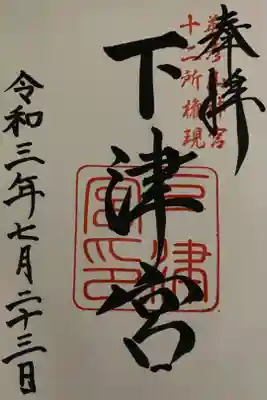 奉拝
十二所権現
下津宮
令和三年七月二十三日